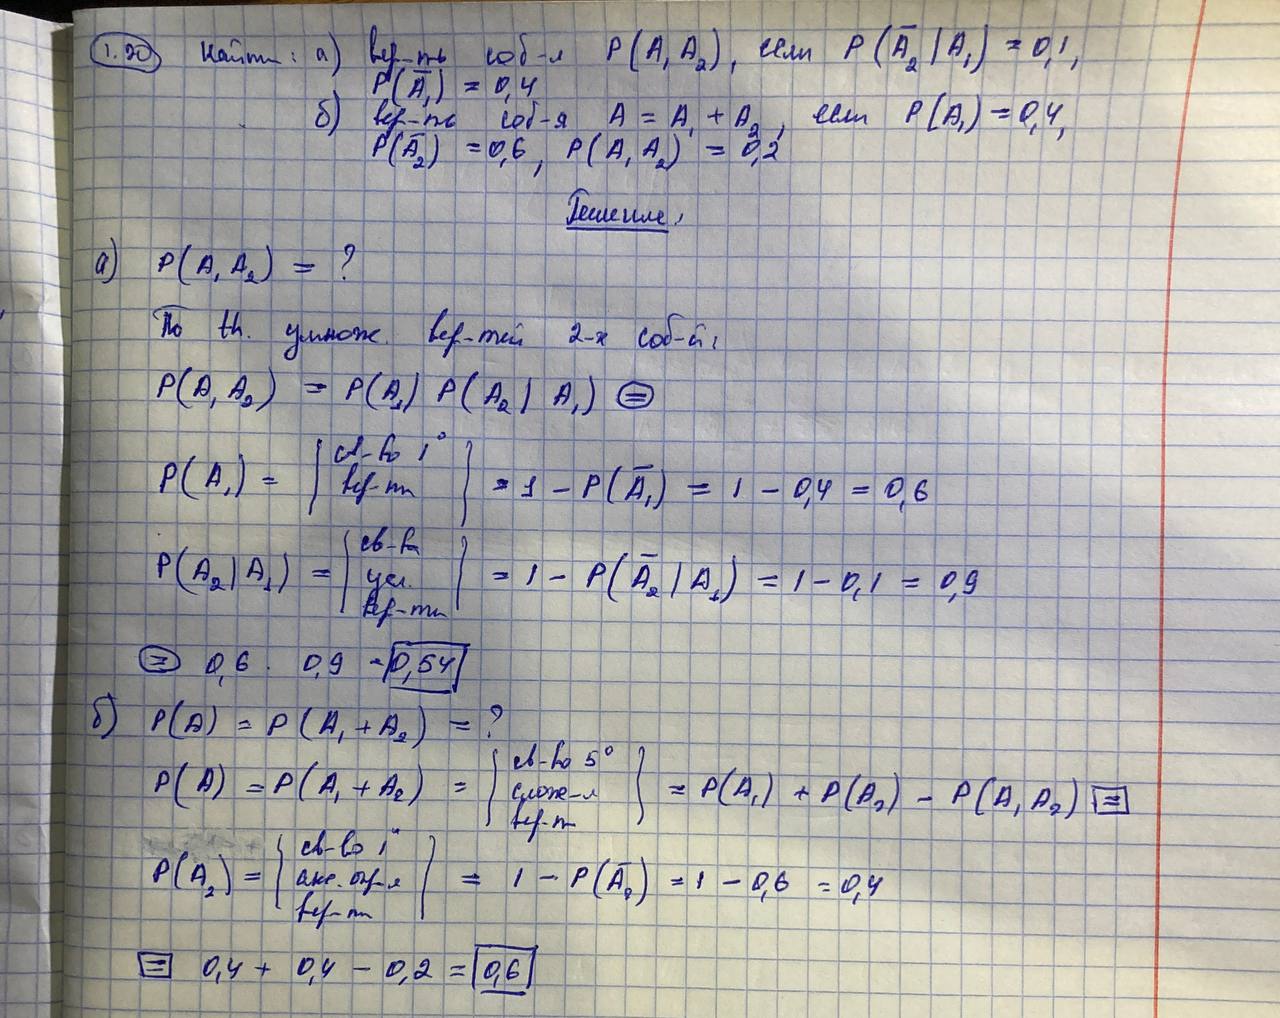 1.20 Найти: а) вер-ть соб-я P(A₁A₂), если P(A̅₂|A₁) = 0,1,
P(A̅₁) = 0,4
б) вер-ть соб-я A = A₁ + A₂, если P(A₁) = 0,4,
P(A̅₂) = 0,6, P(A₁A₂) = 0,2
Решение.
а) P(A₁A₂) = ?
По th. умнож. вер-тей 2-х соб-й:
P(A₁A₂) = P(A₁) P(A₂|A₁) =
P(A₁) = { св-во 1° вер-ти } = 1 - P(A̅₁) = 1 - 0,4 = 0,6
P(A₂|A₁) = { св-ва усл. вер-ти } = 1 - P(A̅₂|A₁) = 1 - 0,1 = 0,9
= 0,6 · 0,9 = 0,54
б) P(A) = P(A₁ + A₂) = ?
P(A) = P(A₁ + A₂) = { св-во 5° слож-я вер-ти } = P(A₁) + P(A₂) - P(A₁A₂) =
P(A₂) = { св-во 1° акс. опр-я вер-ти } = 1 - P(A̅₂) = 1 - 0,6 = 0,4
= 0,4 + 0,4 - 0,2 = 0,6